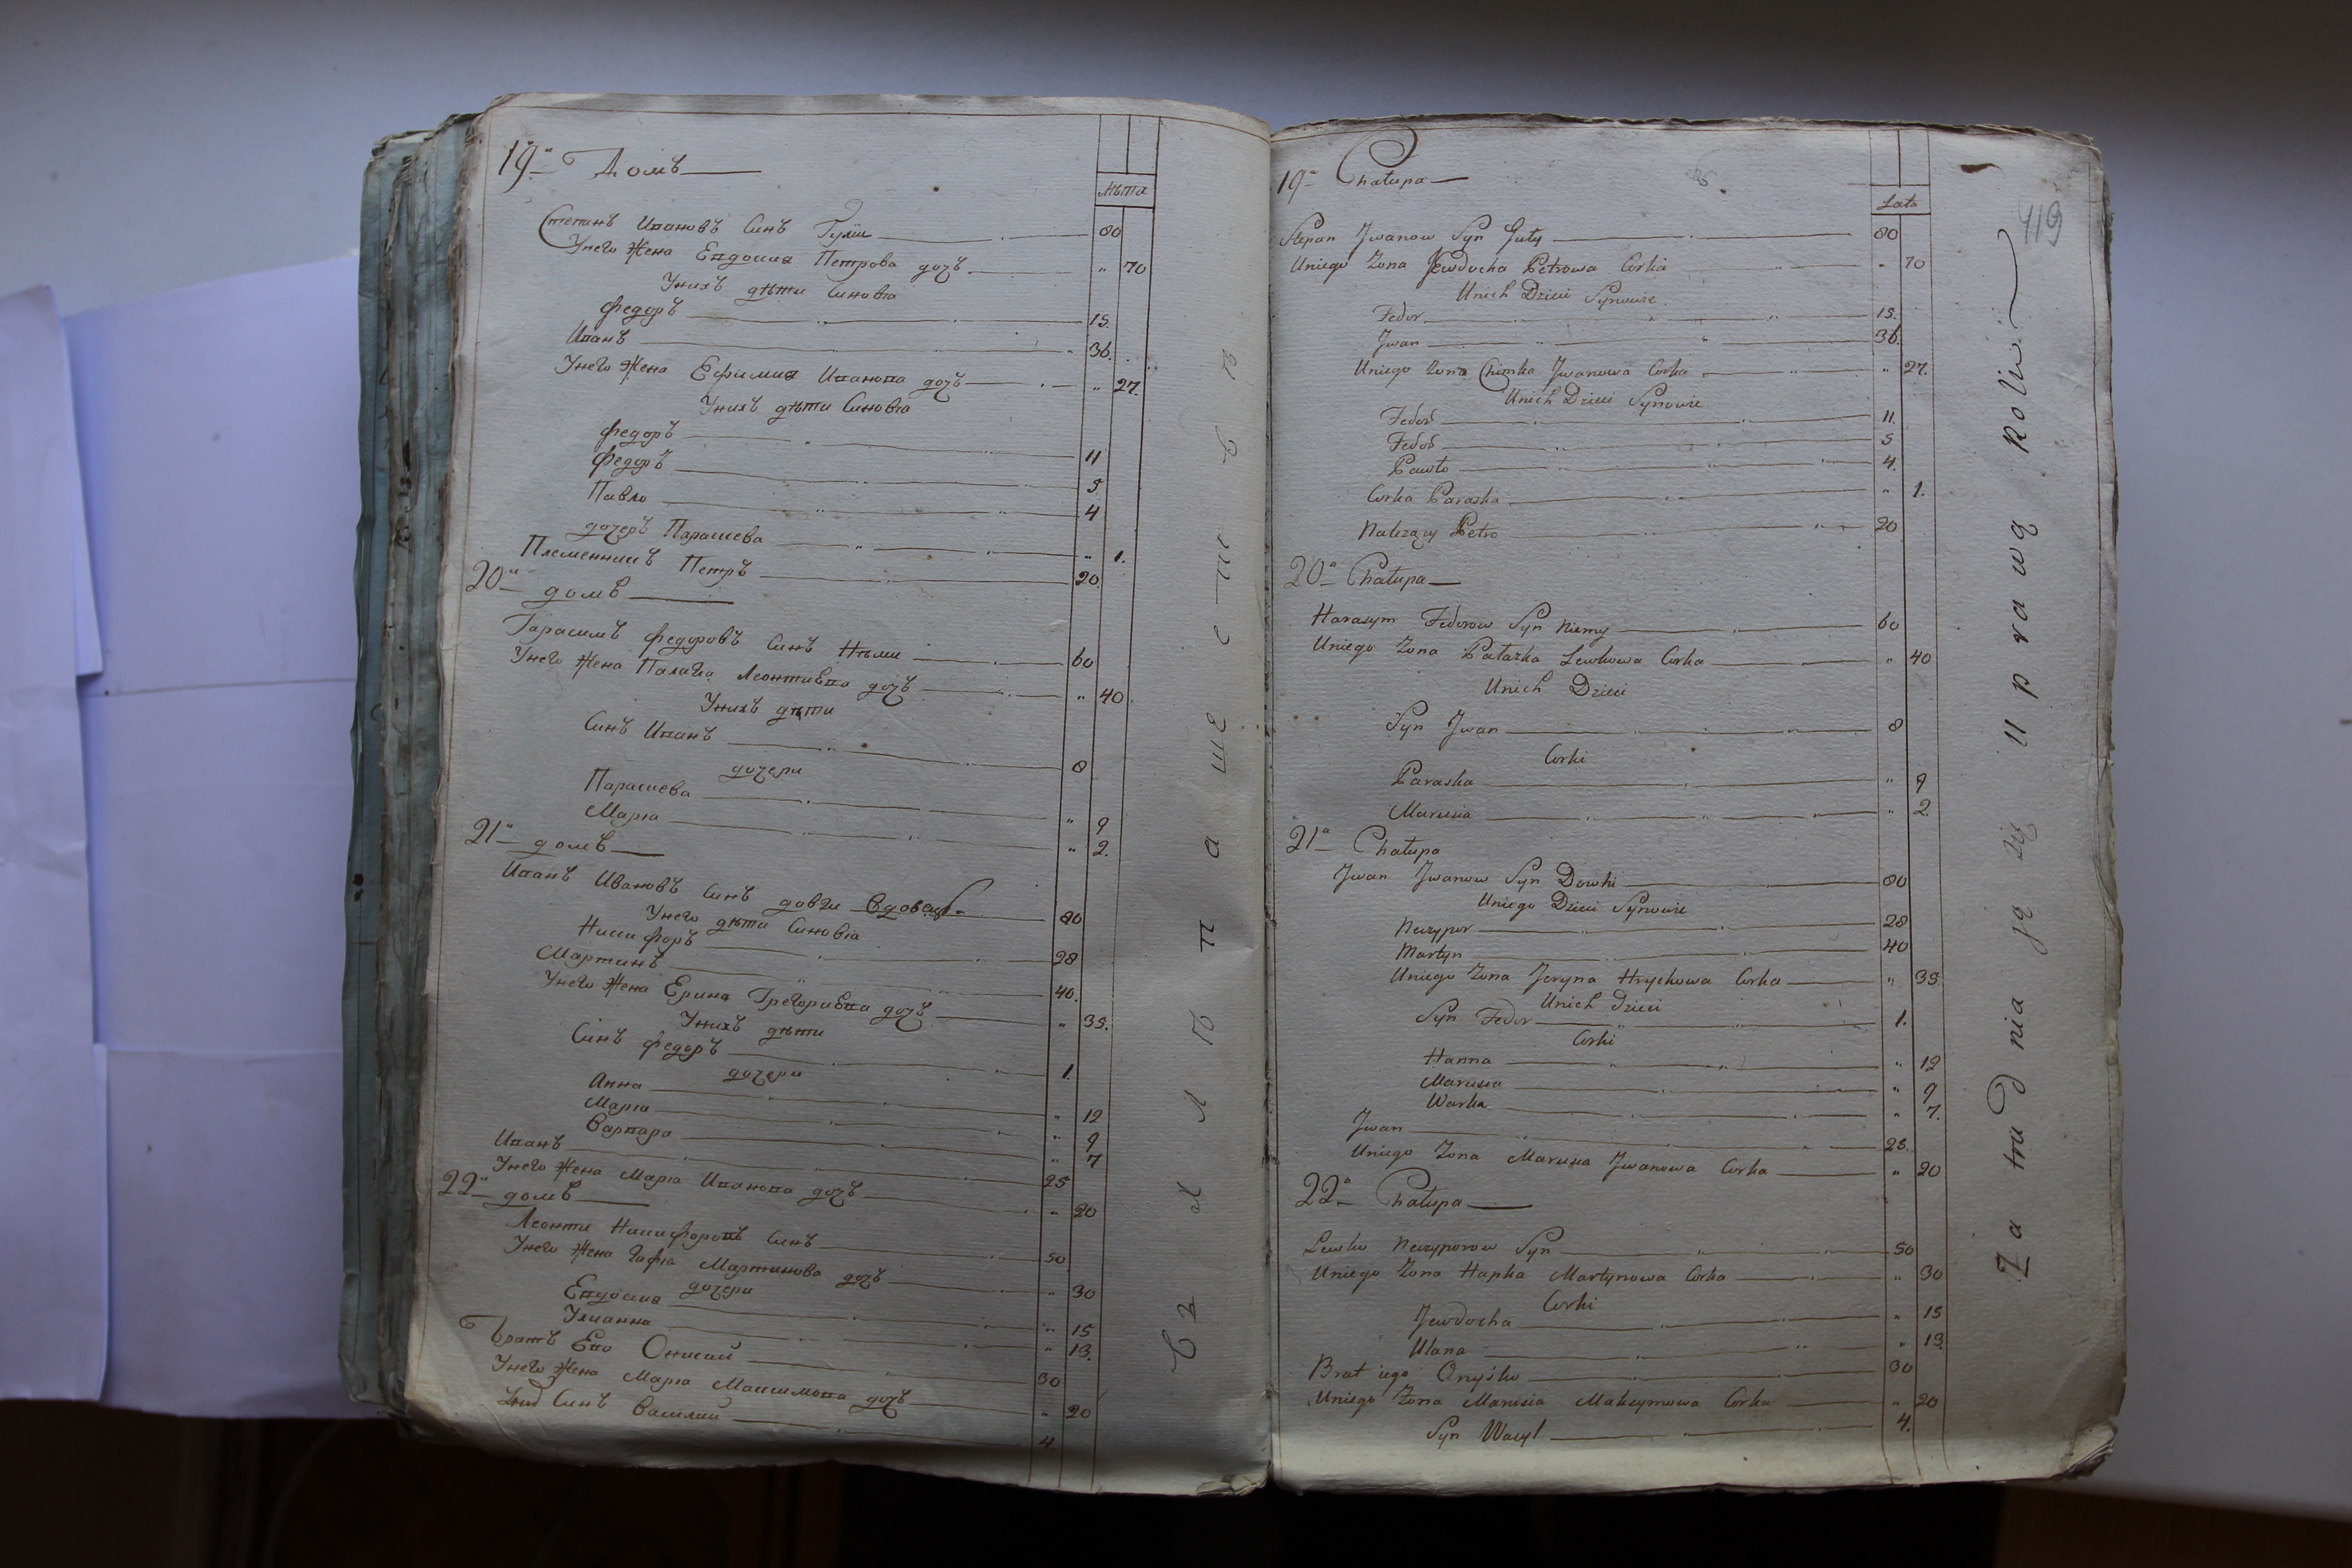 19а Домъ
лѣта
Степанъ Ивановъ Синъ Гулы 80
Унего Жена Евдокия Петрова дочъ " 70
Унихъ дѣти Синовіа
Федоръ 15.
Иванъ 36.
Унего Жена Ефимия Иванова дочъ " 27.
Унихъ дѣти Синовіа
Федоръ 11
Федоръ 5
Павло 4
дочеръ Параскева " 1.
Племенникъ Петръ 20.
20а домъ
Гарасимъ Федоровъ Синъ Нѣми 60
Унего Жена Палагіа Леонтиева дочъ " 40
Унихъ дѣти
Синъ Иванъ 8
дочери
Параскева " 9
Маріа " 2.
21а домъ
Иванъ Ивановъ Синъ довги Вдовец 80
Унего дѣти Синовіа
Никифоръ 28
Мартинъ 40.
Унего Жена Ерина Григориева дочъ " 35.
Унихъ дѣти
Синъ Федоръ 1.
дочери
Анна " 12
Маріа " 9
Варвара " 7
Иванъ 25
Унего Жена Маріа Иванова дочъ " 20
22а домъ
Леонти Никифоровъ Синъ 50
Унего Жена Гафіа Мартинова дочъ " 30
дочери
Евдокия " 15
Улианна " 13.
Братъ Его Онисий 30
Унего Жена Маріа Максимова дочъ " 20
Синъ Василий 4.
119
19а Chałupa
Lata
Stepan Jwanow Syn Guły 80
Uniego Zona Jewdocha Petrowa Corka " 70
Unich Dzieci Synowie
Fedor 15.
Jwan 36.
Uniego Zona Chimka Jwanowa Corka " 27.
Unich Dzieci Synowie
Fedor 11.
Fedor 5
Pawło 4.
Corka Paraska " 1.
Należący Petro 20
20а Chałupa
Harasym Fedorow Syn Niemy 60
Uniego Zona Pałazka Lewkowa Corka " 40
Unich Dzieci
Syn Jwan 8
Corki
Paraska " 9
Marusia " 2.
21а Chałupa
Jwan Jwanow Syn Dowhi 80
Uniego Dzieci Synowie
Neczypor 28
Martyn 40
Uniego Zona Jeryna Hryckowa Corka " 35.
Unich Dzieci
Syn Fedor 1.
Corki
Hanna " 12
Marusia " 9
Warka " 7.
Jwan 25.
Uniego Zona Marusia Jwanowa Corka " 20
22а Chałupa
Lewko Neczyporow Syn 50
Uniego Zona Hapka Martynowa Corka " 30
Corki
Jewdocha " 15
Ulana " 13.
Brat iego Onyśko 30
Uniego Zona Marusia Maksymowa Corka " 20
Syn Wasyl 4.
Zatrudnia ją się uprawą Roliw